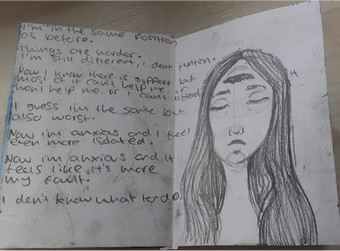 I'm in the same position
as before.
Things are harder.
I'm still different, I don't function.
Now I know there is support but it
most of it can't help me or
won't help me. or I can't afford
I guess I'm the same but
also worst.
Now i'm anxious and I feel
even more isolated.
Now I'm anxious and it
feels like it's more
my fault.
I don't know what to do.